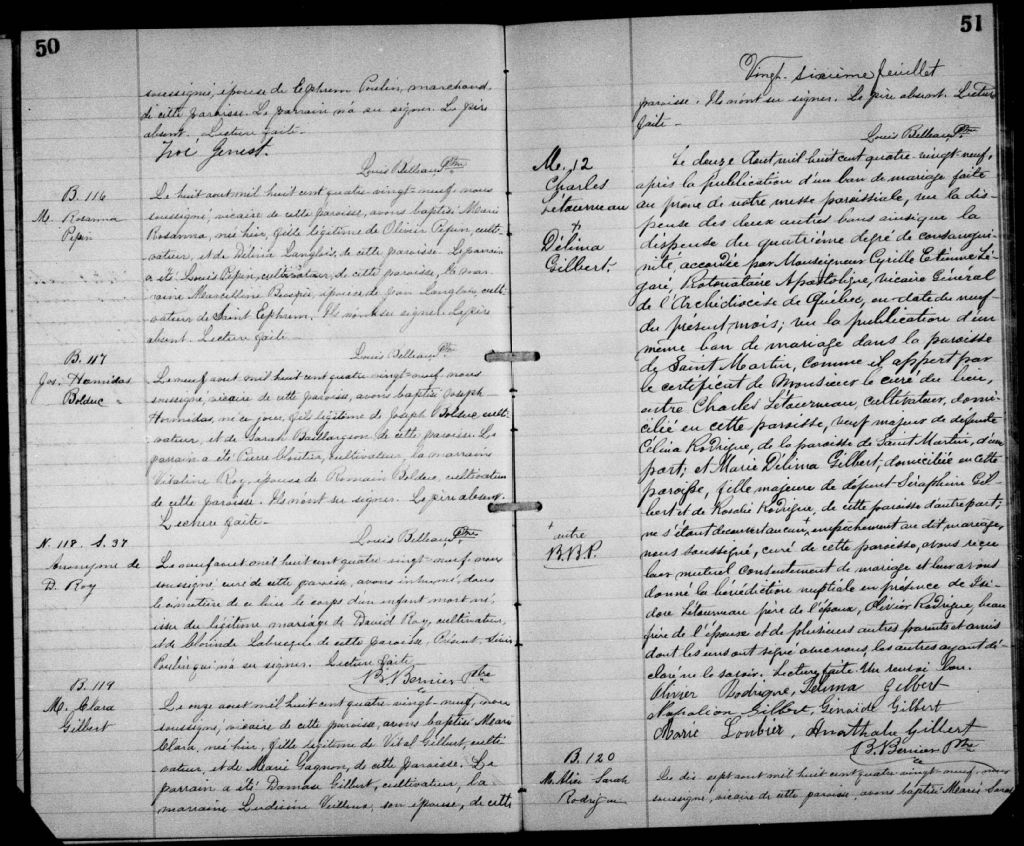 50
soussigné, épouse de Ephrem Poulin, marchand
de cette paroisse. Le parrain n'a su signer. Le père
absent. Lecture faite.
Joé Genest.
Louis Belleau Ptre
B. 116
M. Rosanna
Pepin
Le huit aout mil huit cent quatre-vingt-neuf, nous
soussigné, vicaire de cette paroisse, avons baptisé Marie
Rosanna, née hier, fille légitime de Olivier Pepin, culti-
vateur, et de Délina Langlois, de cette paroisse. Le parrain
a été Louis Pepin, cultivateur, de cette paroisse, la mar-
raine Marcelline, épouse de Jean Langlois, culti-
vateur de Saint Ephrem. Ils n'ont su signer. Le père
absent. Lecture faite.
Louis Belleau Ptre
B. 117
Jos. Hormidas
Bolduc
Le neuf aout mil huit cent quatre-vingt-neuf nous
soussigné, vicaire de cette paroisse, avons baptisé Joseph
Hormidas, né ce jour, fils légitime de Joseph Bolduc, culti-
vateur, et de Sarah Baillargeon de cette paroisse. Le
parrain a été Pierre Cloutier, cultivateur, la marraine
Vitaline Roy, épouse de Romain Bolduc, cultivateur
de cette paroisse. Ils n'ont su signer. Le père absent.
Lecture faite.
Louis Belleau Ptre
N. 118. S. 37
Anonyme de
D. Roy
Le neuf aout mil huit cent quatre-vingt-neuf, nous
soussigné curé de cette paroisse, avons inhumé, dans
le cimetière de ce lieu le corps d'un enfant mort né,
issu du légitime mariage de David Roy, cultivateur,
et de Clorinde Labrecque de cette paroisse, Présent,
Poulin qui n'a su signer. Lecture faite.
B. Bernier Ptre
B. 119
M. Clara
Gilbert
Le onze aout mil huit cent quatre-vingt-neuf, nous
soussigné, vicaire de cette paroisse, avons baptisé Marie
Clara, née hier, fille légitime de Vital Gilbert, culti-
vateur, et de Marie Gagnon, de cette paroisse. Le
parrain a été Damase Gilbert, cultivateur, la
marraine Ludivine Veilleux, son épouse, de cette
51
Vingt-sixième feuillet
paroisse. Ils n'ont su signer. Le père absent. Lecture
faite.
Louis Belleau Ptre
M. 12
Charles
Létourneau
+
Délima
Gilbert.
Le douze Aout mil huit cent quatre-vingt-neuf,
après la publication d'un ban de mariage faite
au prone de notre messe paroissiale, vu la dis-
pense des deux autres bans ainsi que la
dispense du quatrième degré de consangui-
nité, accordée par Monseigneur Cyrille Etienne Lé-
garé, Protonotaire Apostolique, vicaire Général
de l'Archidiocèse de Québec, en date du neuf
du présent mois; vu la publication d'un
même ban de mariage dans la paroisse
de Saint Martin, comme il appert par
le certificat de Monsieur le curé du lieu,
entre Charles Létourneau, cultivateur, domi-
cilié en cette paroisse, veuf majeur de défunte
Célina Rodrigue, de la paroisse de Saint Martin, d'une
part; et Marie Délima Gilbert, domiciliée en cette
paroisse, fille majeure de défunt Séraphin Gil-
bert et de Rosalie Rodrigue, de cette paroisse d'autre part;
ne s'étant découvert aucun + empêchement au dit mariage,
nous soussigné, curé de cette paroisse, avons reçu
leur mutuel consentement de mariage et leur avons
donné la bénédiction nuptiale en présence de Isi-
dore Létourneau père de l'époux, Olivier Rodrigue, beau
frère de l'époux et de plusieurs autres parents et amis
dont les uns ont signé avec nous, les autres ayant dé-
claré ne le savoir. Lecture faite. Un renvoi bon.
+ autre
B.B.P.
Olivier Rodrigue, Delima Gilbert
Napoléon Gilbert, Génaide Gilbert
Marie Loubier, Anathalie Gilbert
B. Bernier Ptre
B. 120
M. Alice Sarah
Rodrigue
Le dix sept aout mil huit cent quatre-vingt-neuf, nous
soussigné, vicaire de cette paroisse, avons baptisé Marie Sarah